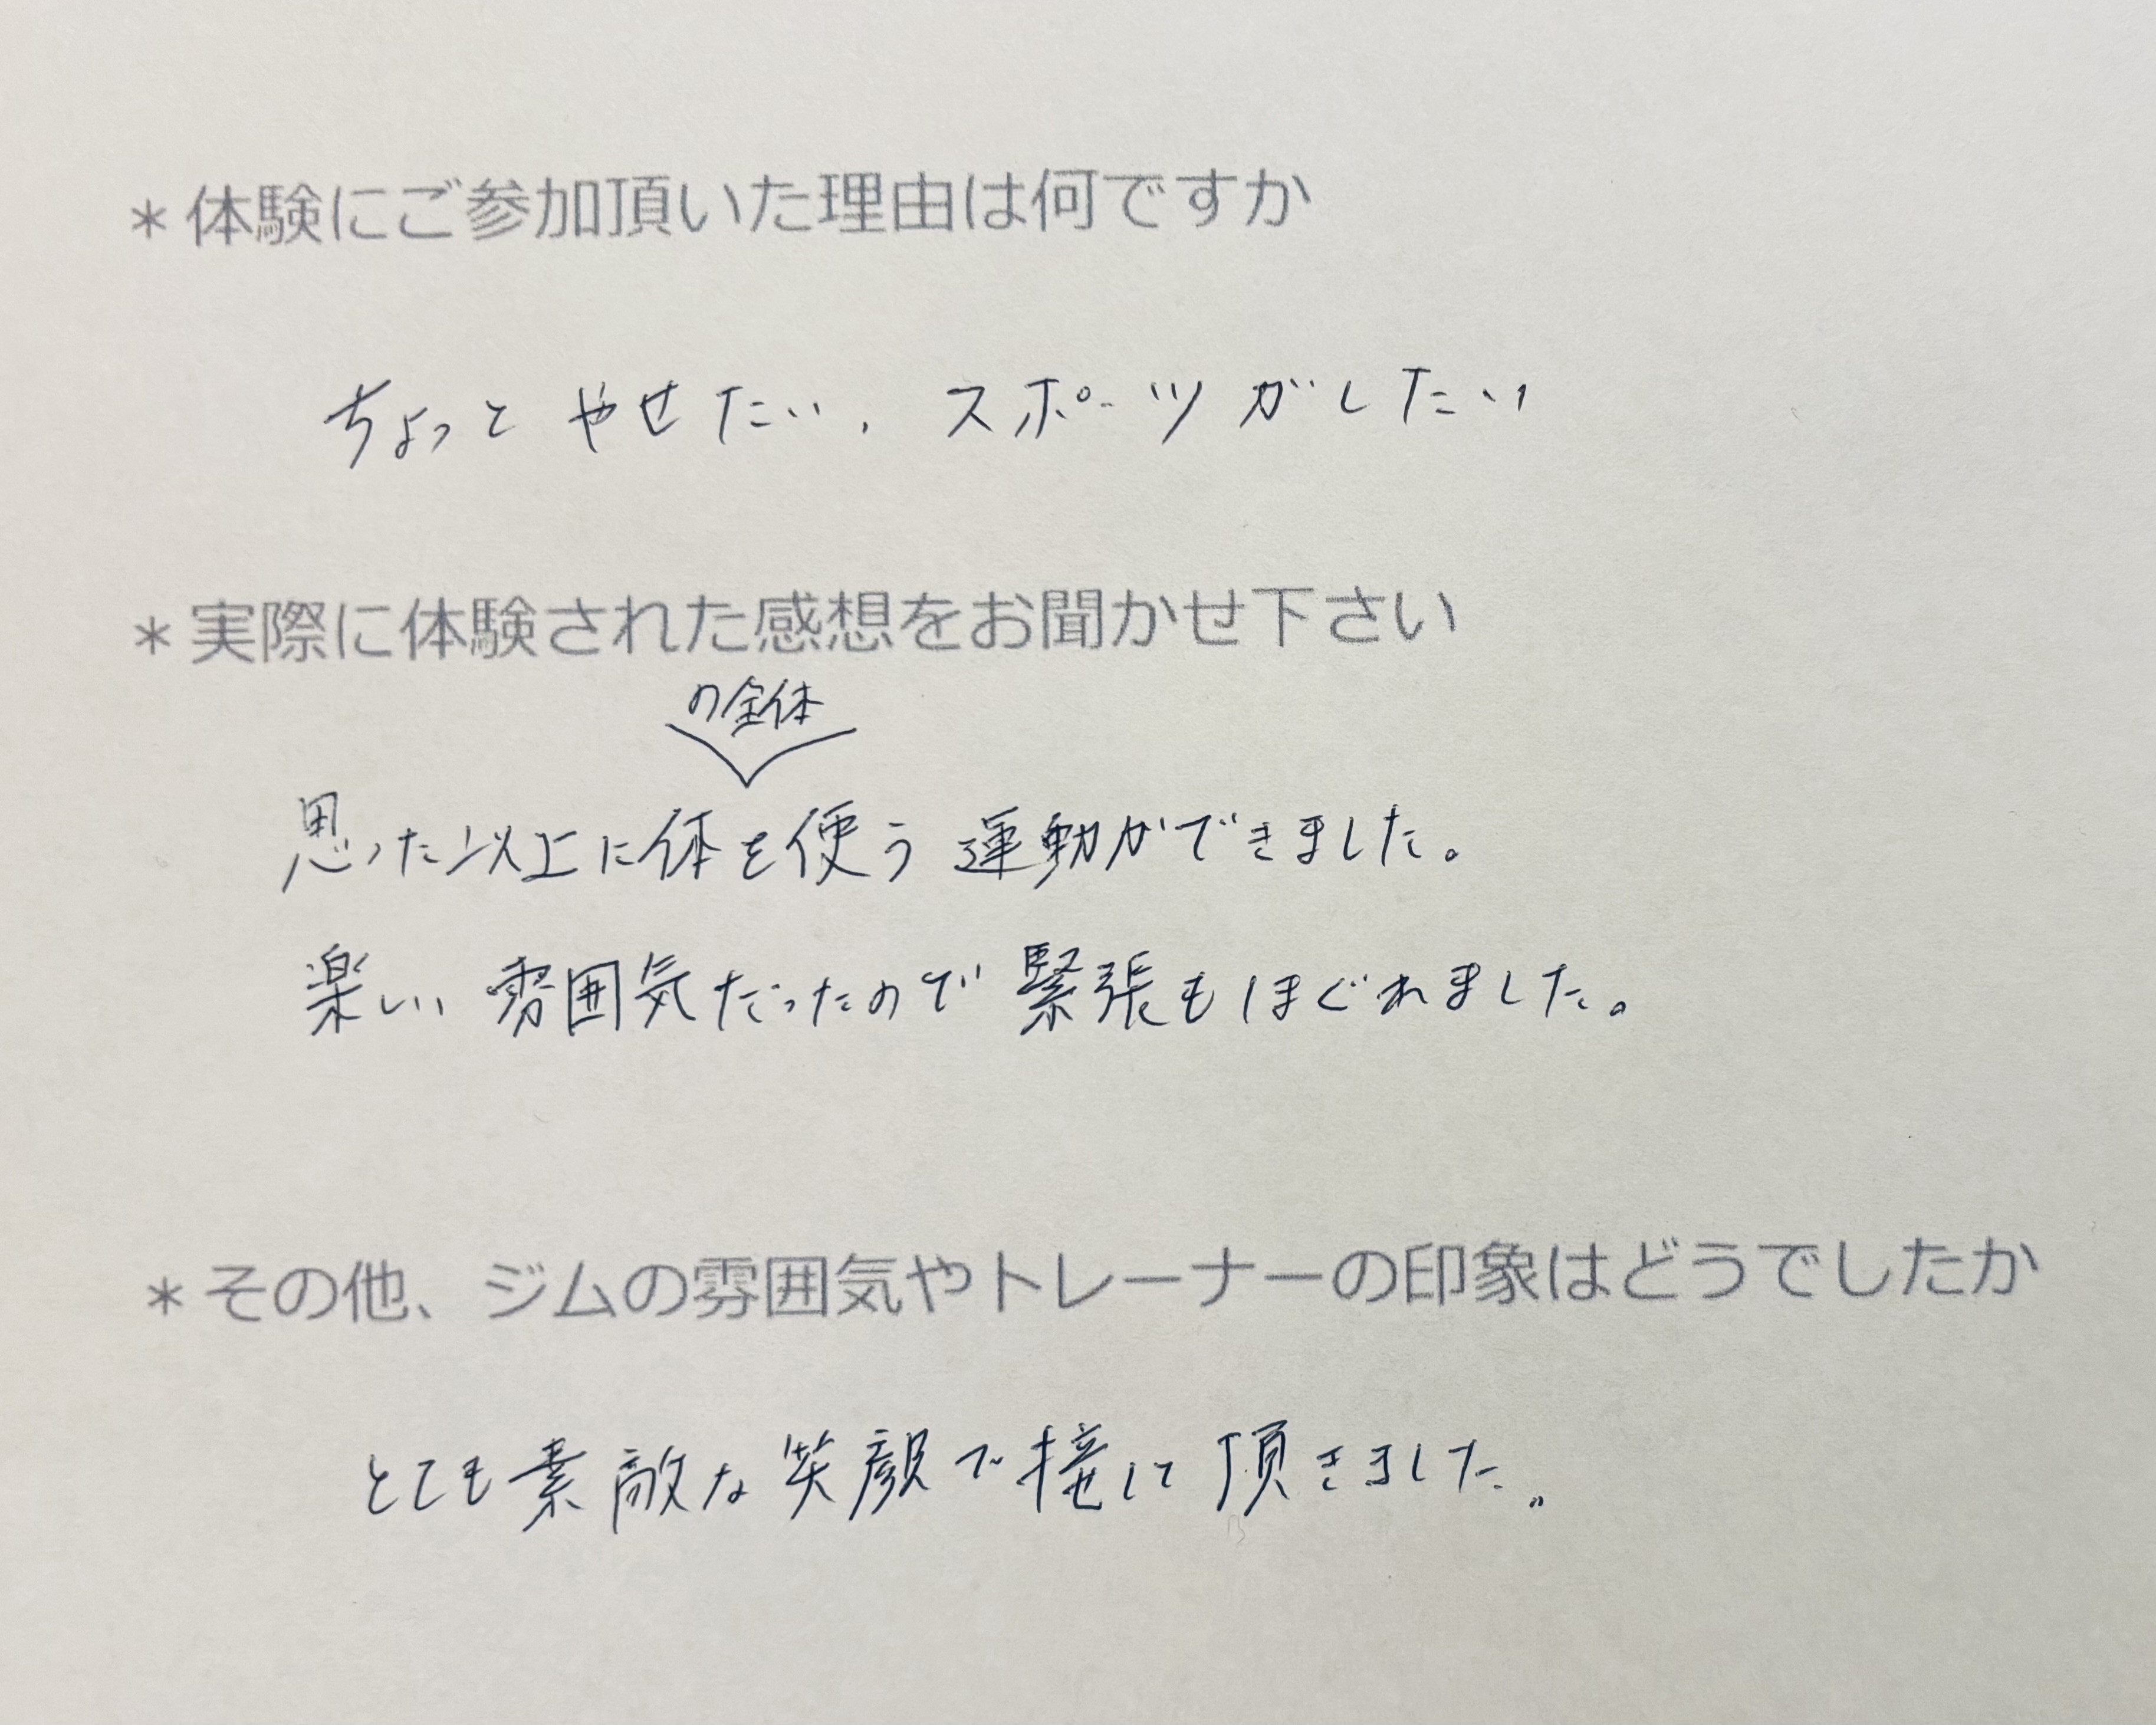 ＊体験にご参加頂いた理由は何ですか
ちょっとやせたい、スポーツがしたい
＊実際に体験された感想をお聞かせ下さい
の全体
思った以上に体を使う運動ができました。
楽しい雰囲気だったので緊張もほぐれました。
＊その他、ジムの雰囲気やトレーナーの印象はどうでしたか
とても素敵な笑顔で接して頂きました。